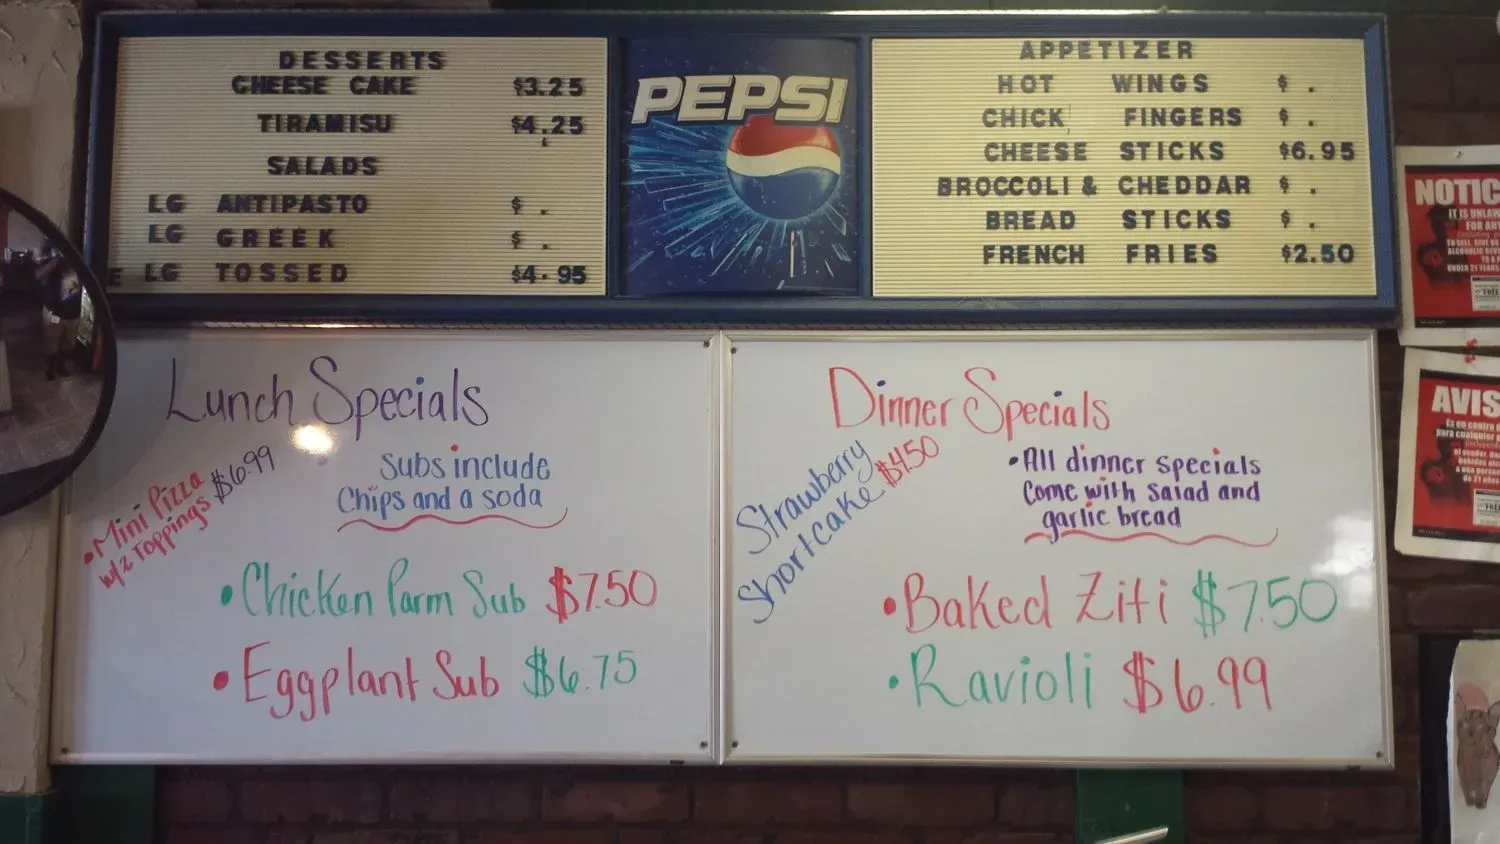 DESSERTS
CHEESE CAKE $3.25
TIRAMISU $4.25
SALADS
LG ANTIPASTO $ .
LG GREEK $ .
E LG TOSSED $4.95
PEPSI
APPETIZER
HOT WINGS $ .
CHICK FINGERS $ .
CHEESE STICKS $6.95
BROCCOLI & CHEDDAR $ .
BREAD STICKS $ .
FRENCH FRIES $2.50
Lunch Specials
Subs include
Chips and a soda
•Mini Pizza
w/2 Toppings $6.99
•Chicken Parm Sub $7.50
•Eggplant Sub $6.75
Dinner Specials
•All dinner specials
Come with salad and
garlic bread
Strawberry
Shortcake $4.50
•Baked Ziti $7.50
•Ravioli $6.99
NOTIC
IT IS UNLAW
FOR ANY
UNDER 21 YEARS
FREE
AVIS
Es en contra
para cualquier
de 21 años